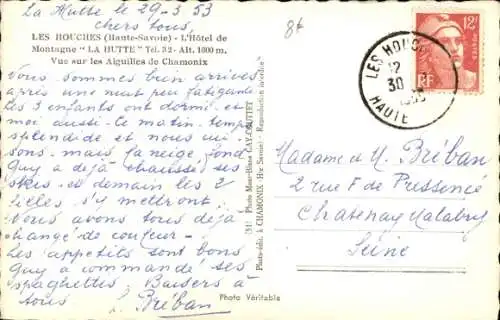 La Hutte le 29-3 53
chers tous,
8f
LES HOUCHES (Haute-Savoie) - L'Hôtel de
Montagne "LA HUTTE" Tél. 32 - Alt. 1000 m.
Vue sur les Aiguilles de Chamonix
Vous sommes bien arrivés
après une nuit peu fatigante
les 3 enfants ont dormi et
moi aussi. Ce matin temps
splendide et nous
sons mais la neige fond
Guy a déjà chaussé ses
skis et demain les 2
filles s'y mettront.
Nous avons tous déjà
changé de couleur -
Les appétits sont bons
Guy a commandé ses
spaghettis. Baisers à
tous
Bréban
Photo CAY-COUTTET
Photo-édit. à CHAMONIX (Hte Savoie) - Reproduction interdite
Photo Véritable
12F
RF
LES HOUCHES
12
30
HAUTE
Madame & M. Bréban
2 rue F de Pressencé
Chatenay Malabry
Seine